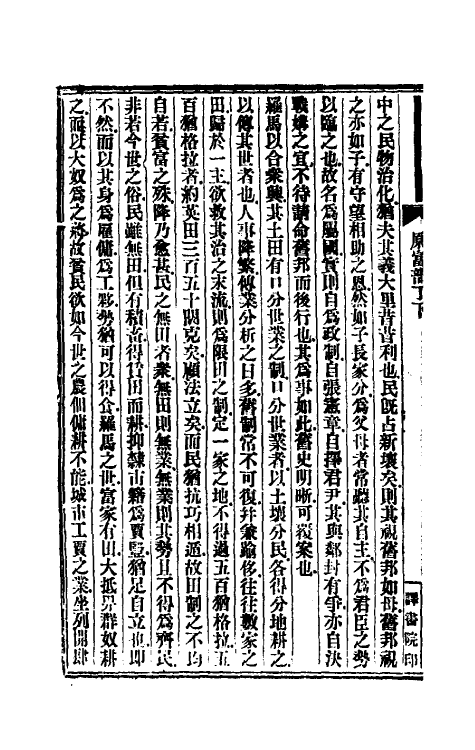 原富部丁下
中之民物治化猶夫其義大里昔昔利也民既占新壤矣則其視舊邦如母舊邦視
之亦如子有守望相助之恩然如子長家分為父母者常聽其自主不為君臣之勢
以臨之也故名為屬國實則自為政制自張憲章自擇君尹其與鄰封有爭亦自決
戰媾之宜不待請命舊邦而後行也其為事如此舊史明晰可覆案也
羅馬以合眾興其土田有口分世業之制口分世業者以土壤分民各得分地耕之
以傳其世者也人事降繁傳業分析之日多舊制常不可復并兼踰侈往往數家之
田歸於一主欲救其治之末流則為限田之制定一家之地不得過五百猶格拉五
百猶格拉者約英田三百五十闊克矣顧法立矣而民猶抗巧相遁故田制之不均
自若貧富之殊降乃愈甚民之無田者眾無田則無業無業則其勢且不得為齊民
非若今世之俗民雖無田但有積畜得貸田而耕抑隸市籍為賈豎猶足自立也即
不然而以其身為雇傭為工夥勢猶可以得食羅馬之世富家有田大抵畀群奴耕
之而以大奴為之蒞故貧民欲如今世之農佃傭耕不能城市工賈之業坐列開肆
譯書院印